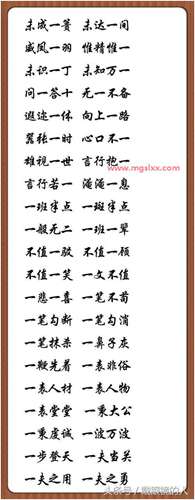 未成一篑 未达一间
威凤一羽 惟精惟一
未识一丁 未知万一
问一答十 无一不备
遐迩一体 向上一路
嚣张一时 心口不一
雄视一世 言行抱一
www.mgslxx.com
言行若一 奄奄一息
一班半点 一斑半点
一般无二 一班一辈
不值一驳 不值一顾
不值一笑 一文不值
一悲一喜 一笔不苟
一笔勾断 一笔勾消
一笔抹杀 一鼻子灰
一鞭先着 一表非俗
一表人材 一表人物
一表堂堂 一秉大公
一秉虔诚 一波万波
一步登天 一夫当关
一夫之用 一夫之勇